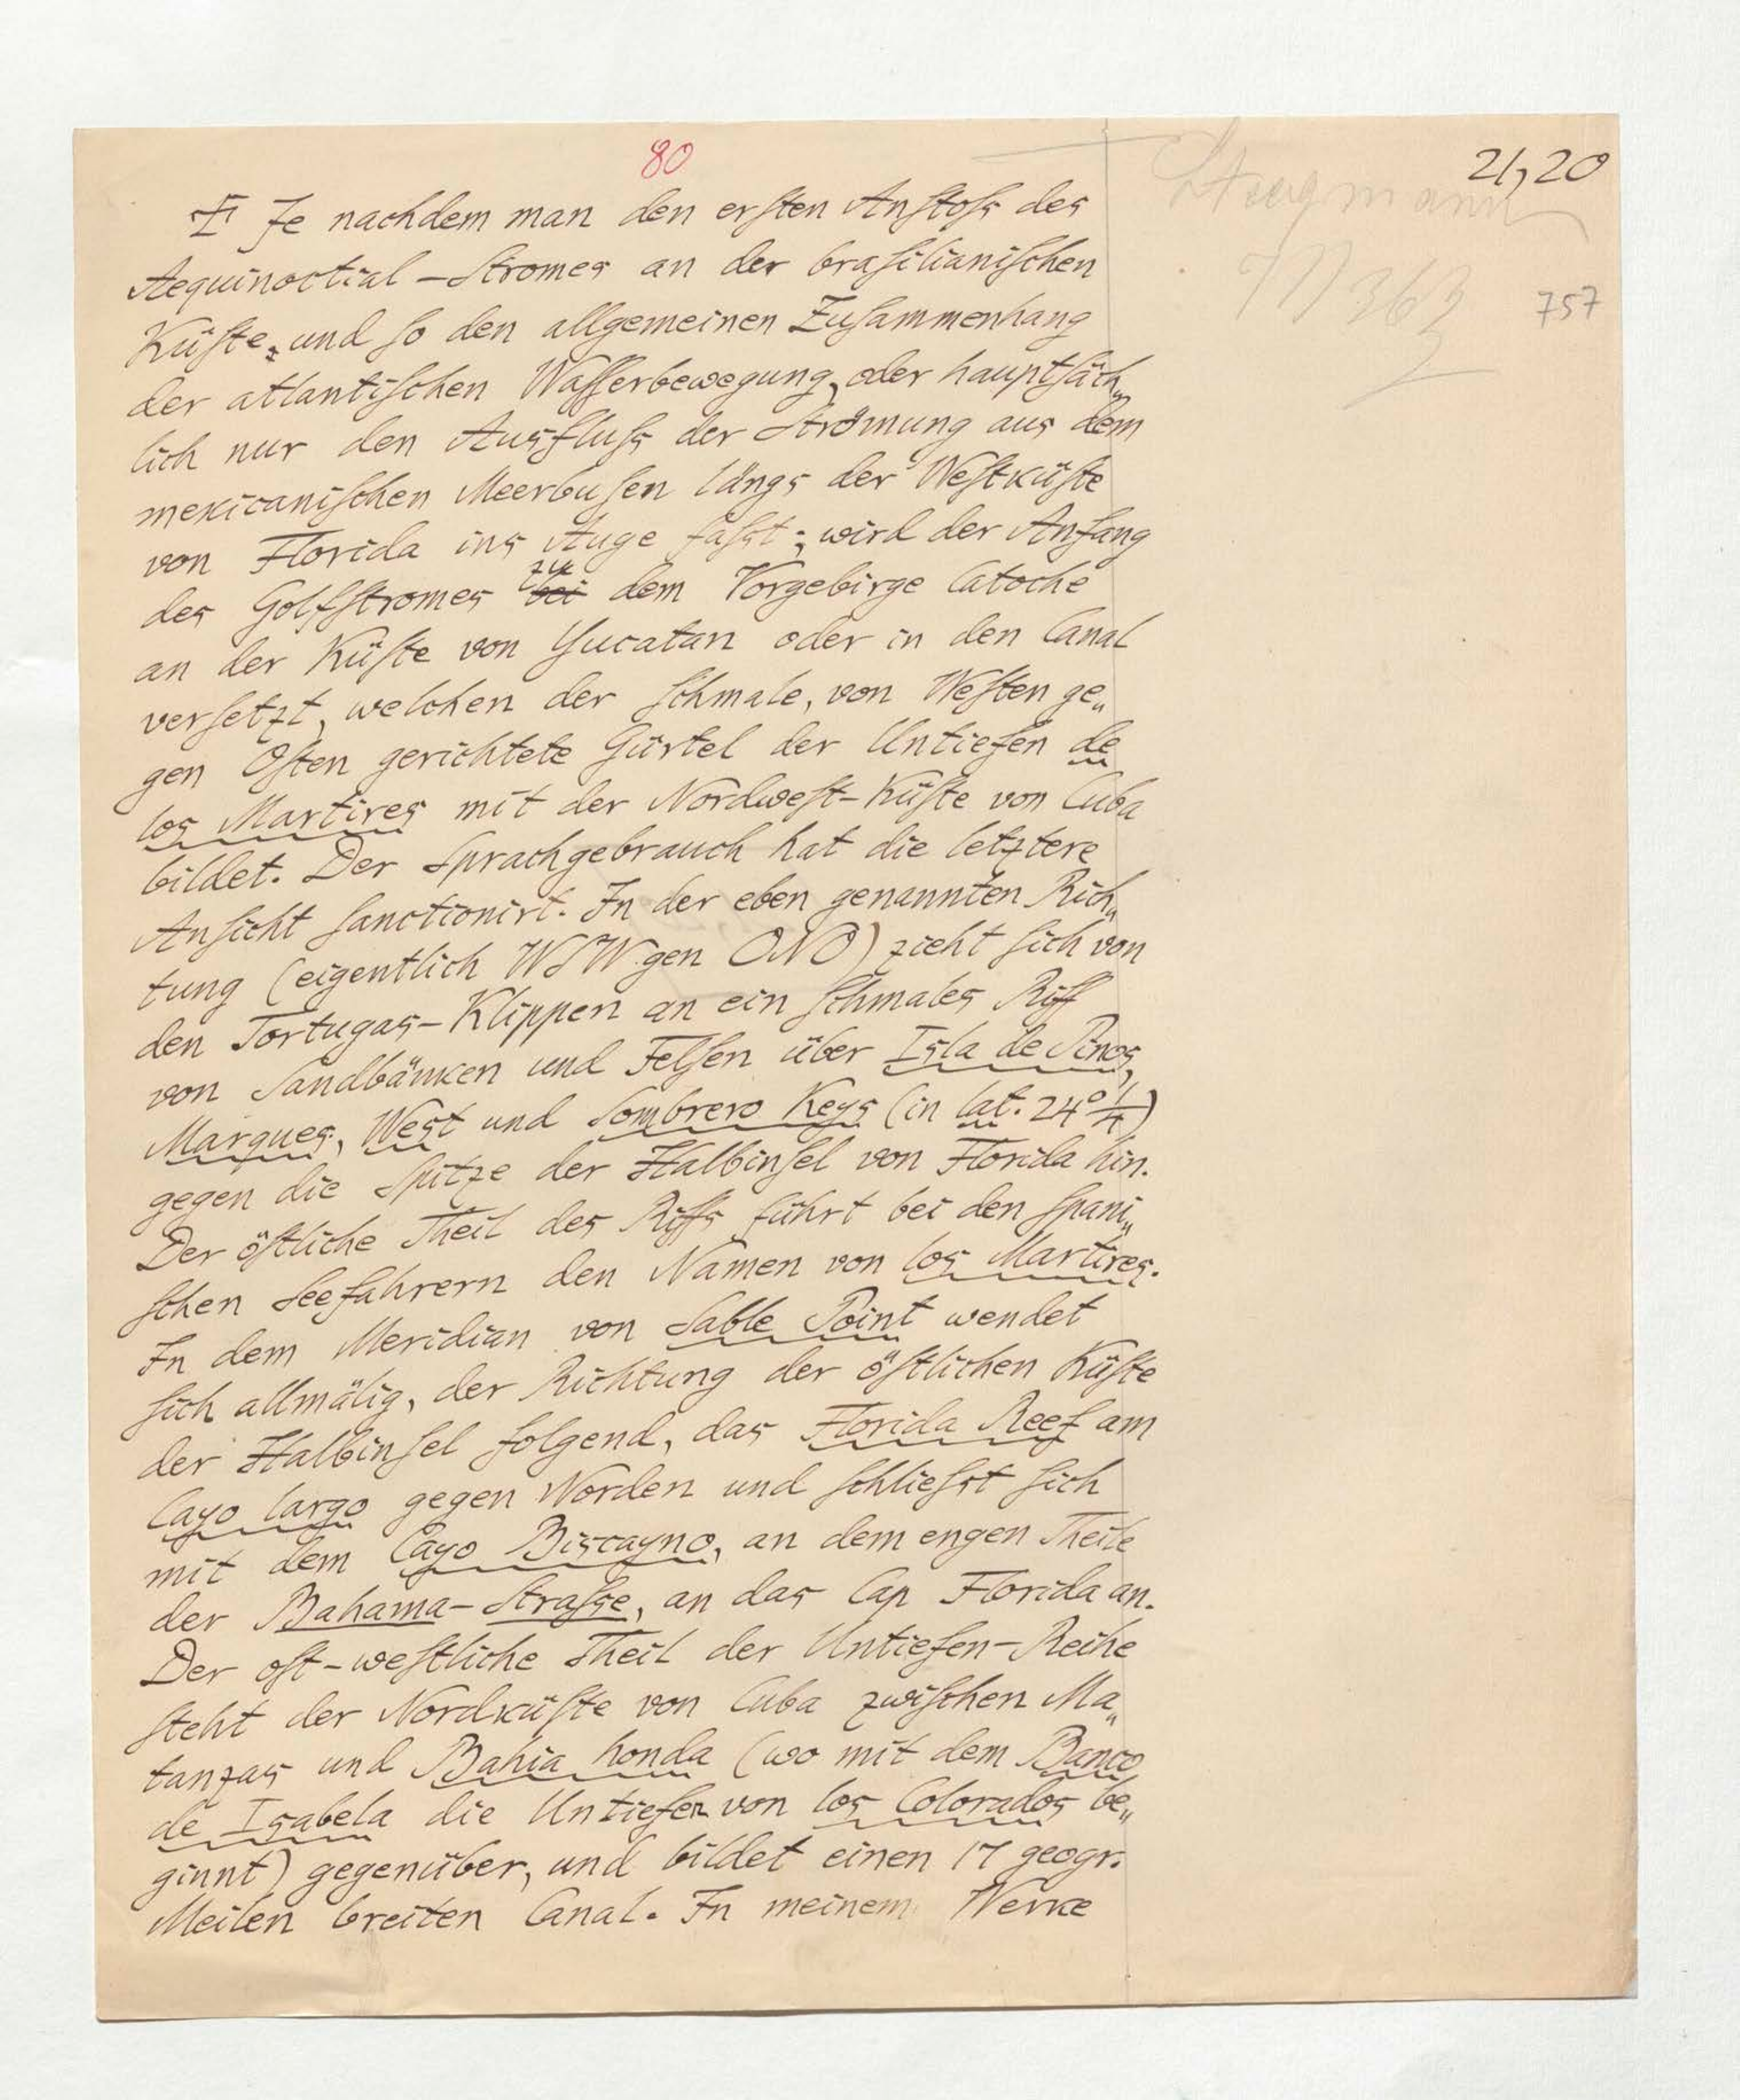 80
21,20
757
Je nachdem man den erſten Anſtoſs des
Aequinoctial-Stromes an der braſilianiſchen
Küſte, und ſo den allgemeinen Zuſammenhang
der atlantiſchen Waſſerbewegung, oder hauptſäch„
lich nur den Ausfluſs der Strömung aus dem
mexicaniſchen Meerbuſen längs der Weſtküſte
von Florida ins Auge faſst; wird der Anfang
des Golfſtromes zu bei dem Vorgebirge Catoche
an der Küſte von Yucatan oder in den Canal
verſetzt, welchen der ſchmale, von Weſten ge„
gen Oſten gerichtete Gürtel der Untiefen de
los Martires mit der Nordweſt-Küſte von Cuba
bildet. Der Sprachgebrauch hat die letztere
Anſicht ſanctionirt. In der eben genannten Rich„
tung (eigentlich WSW gen ONO) zieht ſich von
den Tortugas-Klippen an ein ſchmales Riff
von Sandbänken und Felſen über Isla de Pinos,
Marques, West und Sombrero Keys (in lat. 24° 1/4)
gegen die Spitze der Halbinſel von Florida hin.
Der öſtliche Theil des Riffs führt bei den ſpani„
ſchen Seefahrern den Namen von los Martires.
In dem Meridian von Sable Point wendet
ſich allmälig, der Richtung der öſtlichen Küſte
der Halbinſel folgend, das Florida Reef am
Cayo largo gegen Norden und ſchlieſst ſich
mit dem Cayo Biscayno, an dem engen Theile
der Bahama-Straſse, an das Cap Florida an.
Der oſt-weſtliche Theil der Untiefen-Reihe
ſteht der Nordküſte von Cuba zwiſchen Ma„
tanzas und Bahia honda (wo mit dem Banco
de Isabela die Untiefen von los Colorados be„
ginnt) gegenüber, und bildet einen 17 geogr.
Meilen breiten Canal. In meinem Werke